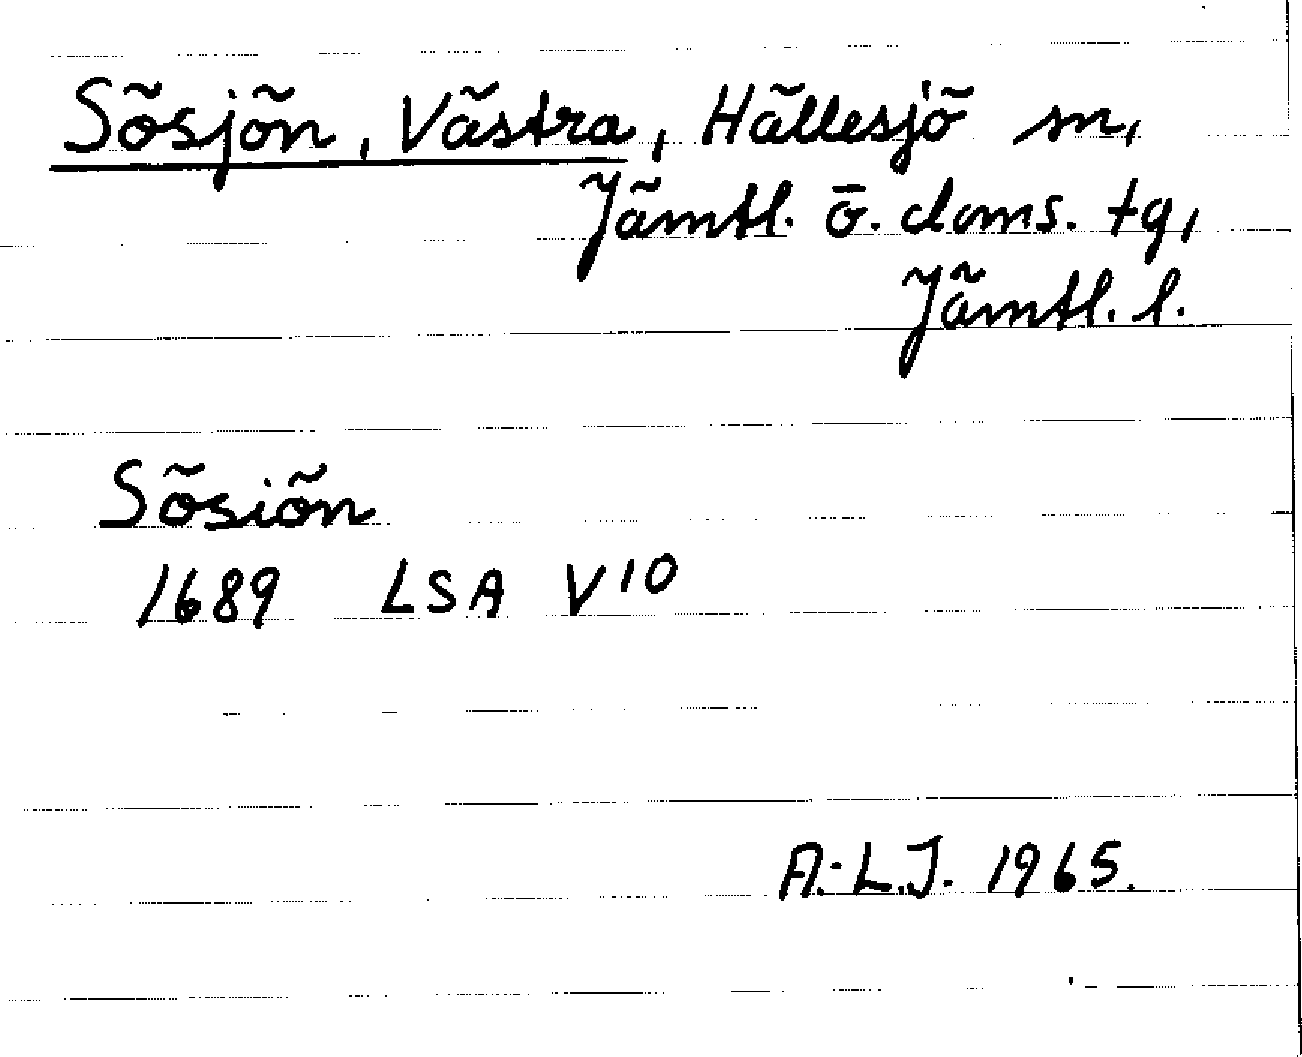 Sösjön, Västra, Hällesjö sn,
Jämtl. ö. doms. tg,
Jämtl. l.
Sösiön
1689 LSA V10
A.-L.J. 1965.